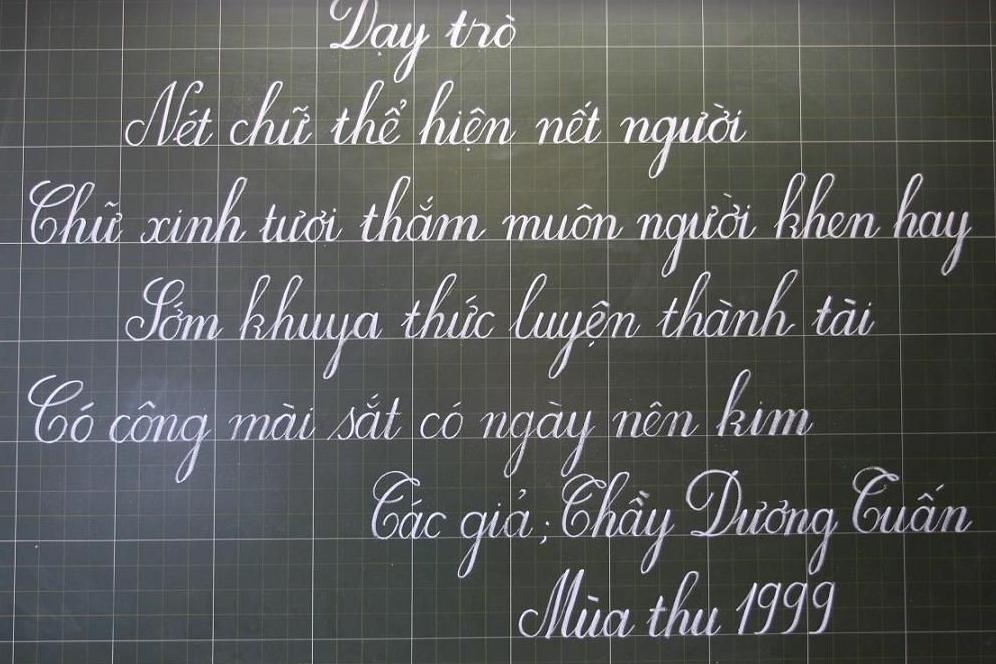 Dạy trò
Nét chữ thể hiện nết người
Chữ xinh tươi thắm muôn người khen hay
Sớm khuya thức luyện thành tài
Có công mài sắt có ngày nên kim
Tác giả ; Thầy Dương Tuấn
Mùa thu 1999